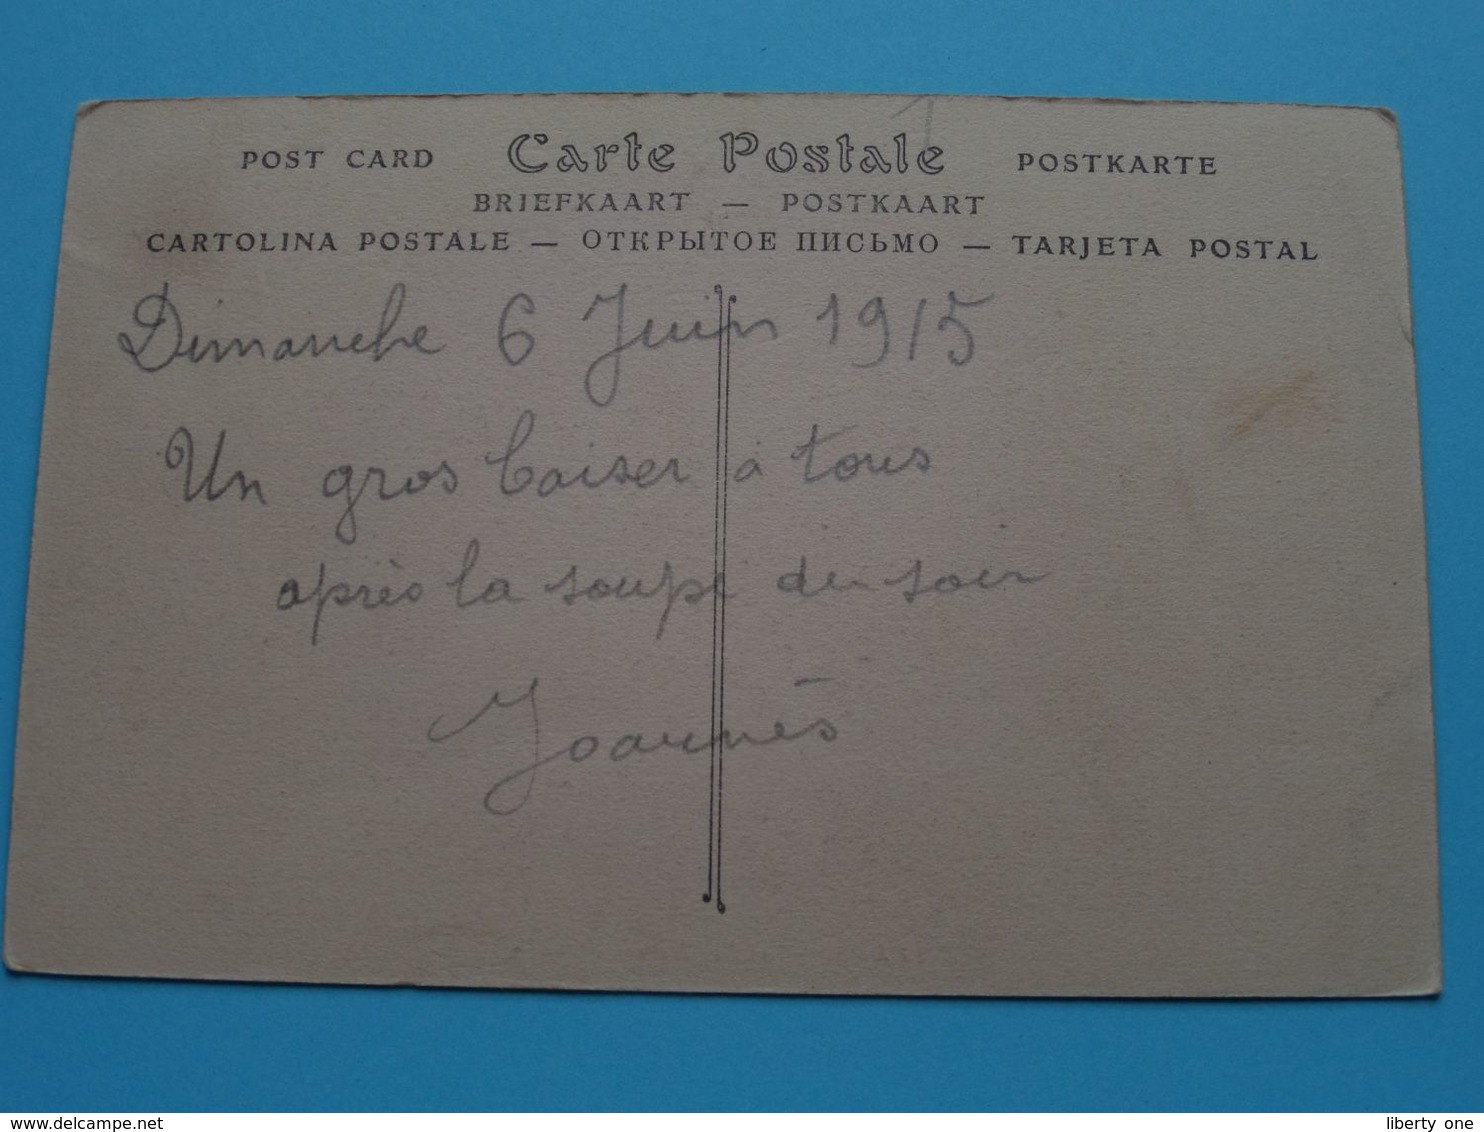 POST CARD Carte Postale POSTKARTE
BRIEFKAART — POSTKAART
CARTOLINA POSTALE — ОТКРЫТОЕ ПИСЬМО — TARJETA POSTAL
Dimanche 6 Juin 1915
Un gros baiser à tous
après la soupe du soir
Joannès
www.delcampe.net
liberty one